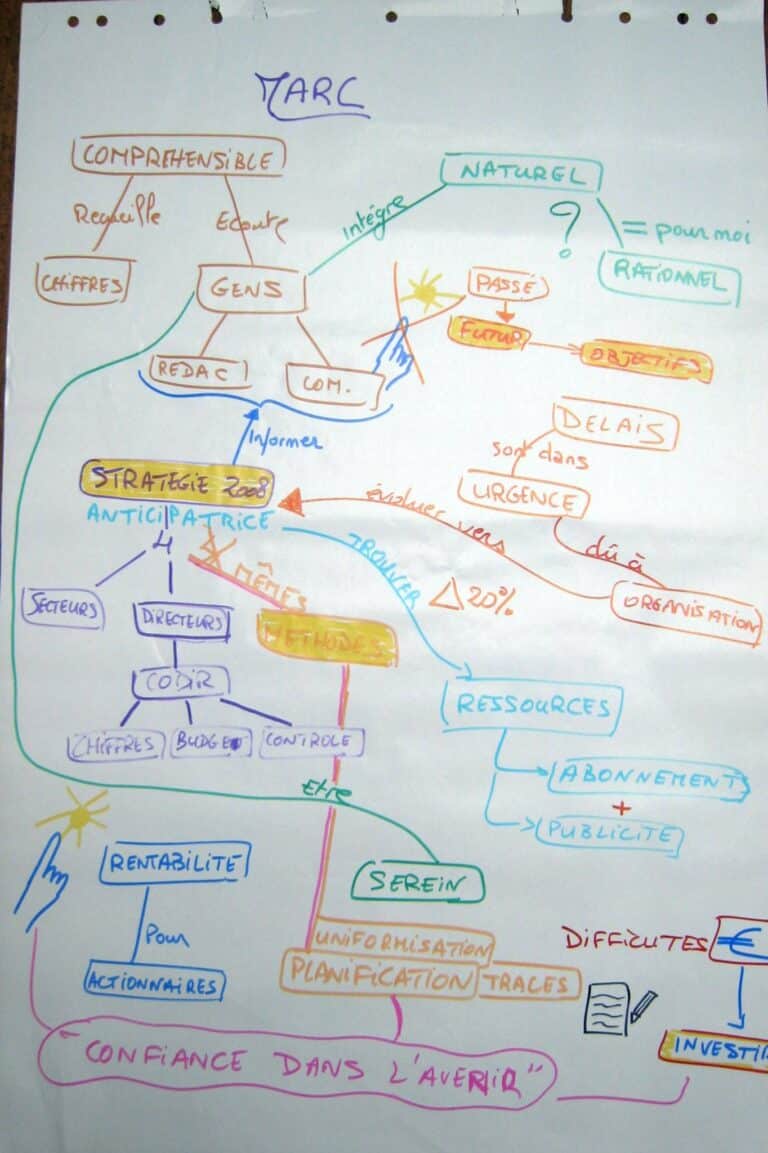 MARC
COMPREHENSIBLE
NATUREL
Recueille
Ecoute
Intègre
?
= pour moi
CHIFFRES
GENS
RATIONNEL
PASSÉ
FUTUR
OBJECTIFS
REDAC
COM.
Informer
DELAIS
sont dans
URGENCE
STRATEGIE 2008
évoluer vers
ANTICIPATRICE
dû à
4
TROUVER
MÊMES
Δ 20%
ORGANISATION
SECTEURS
DIRECTEURS
METHODES
CODIR
RESSOURCES
CHIFFRES
BUDGET
CONTROLE
ABONNEMENTS
+
PUBLICITÉ
Etre
RENTABILITÉ
SEREIN
Pour
UNIFORMISATION
DIFFICUTES
€
ACTIONNAIRES
PLANIFICATION
TRACES
INVESTIR
"CONFIANCE DANS L'AVENIR"